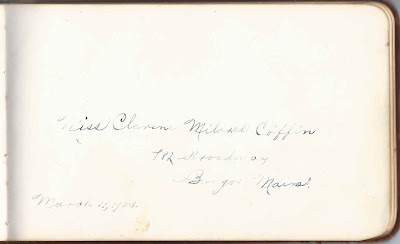 Miss Clarine Mildred Coffin
Broadway
Bangor Maine.
March